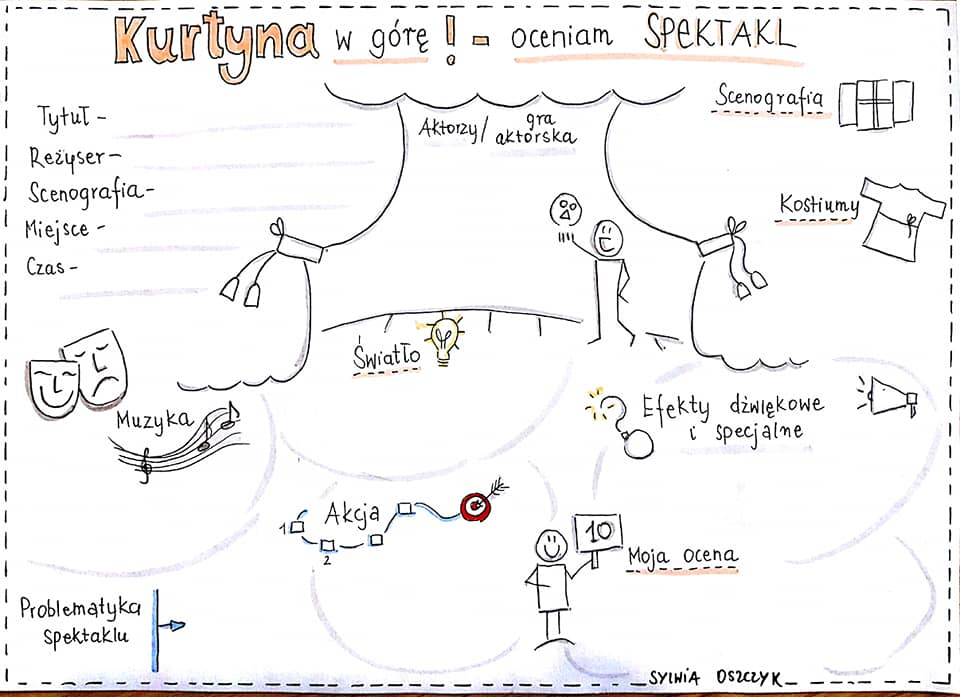 Kurtyna w górę! - oceniam SPEKTAKL
Tytuł -
Reżyser -
Scenografia -
Miejsce -
Czas -
Aktorzy/gra
aktorska
Scenografia
Kostiumy
Światło
Muzyka
Efekty dźwiękowe
i specjalne
Akcja
1
2
10
Moja ocena
Problematyka
spektaklu
SYLWIA OSZCZYK